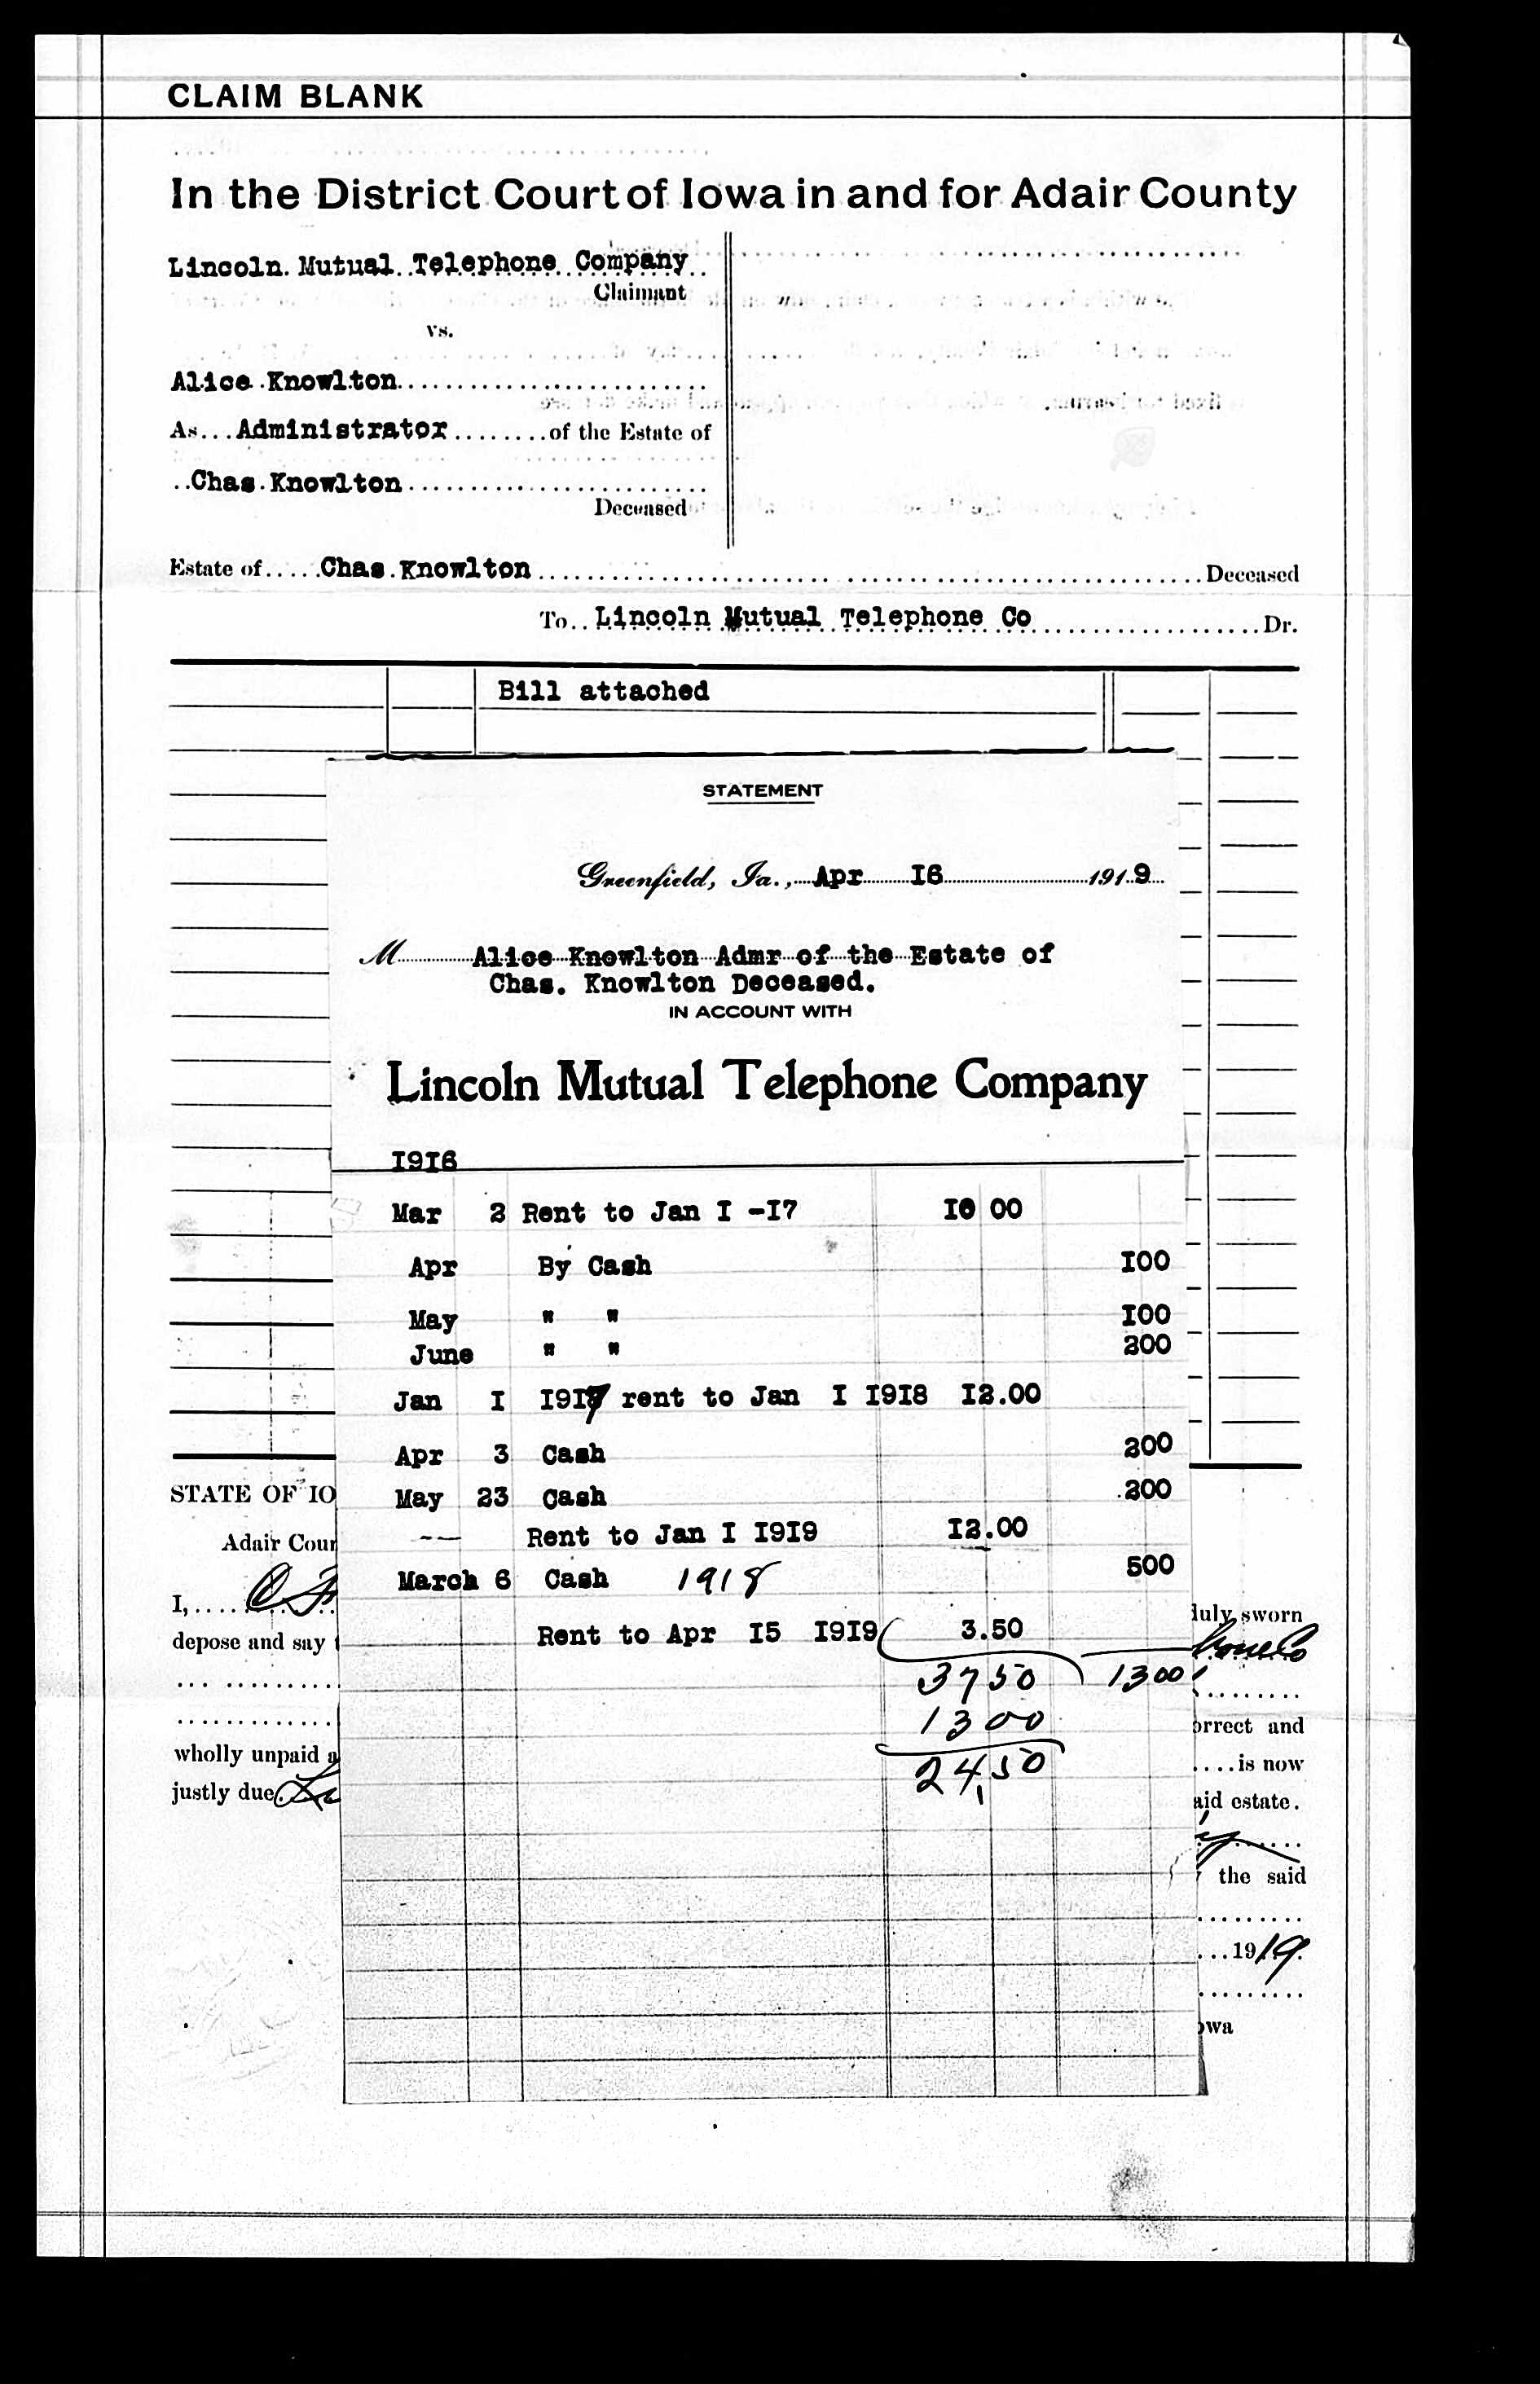 CLAIM BLANK
In the District Court of Iowa in and for Adair County
Lincoln Mutual Telephone Company
Claimant
vs.
Alice Knowlton
As Administrator of the Estate of
Chas Knowlton
Deceased
Estate of Chas Knowlton Deceased
To Lincoln Mutual Telephone Co Dr.
Bill attached
STATEMENT
Greenfield, Ia., Apr I6 1919
M Alice Knowlton Admr of the Estate of
Chas. Knowlton Deceased.
IN ACCOUNT WITH
Lincoln Mutual Telephone Company
I9I6
Mar 2 Rent to Jan I -I7 I0 00
Apr By Cash I00
May " " I00
June " " 200
Jan I I9I7 rent to Jan I I9I8 I2.00
Apr 3 Cash 200
May 23 Cash 200
-- Rent to Jan I I9I9 I2.00
March 6 Cash 1918 500
Rent to Apr I5 I9I9 3.50
37 50 13 00
13 00
24.50
STATE OF IO
Adair Cour
I,
duly sworn
depose and say
orrect and
wholly unpaid a
is now
justly due
aid estate.
the said
1919
owa